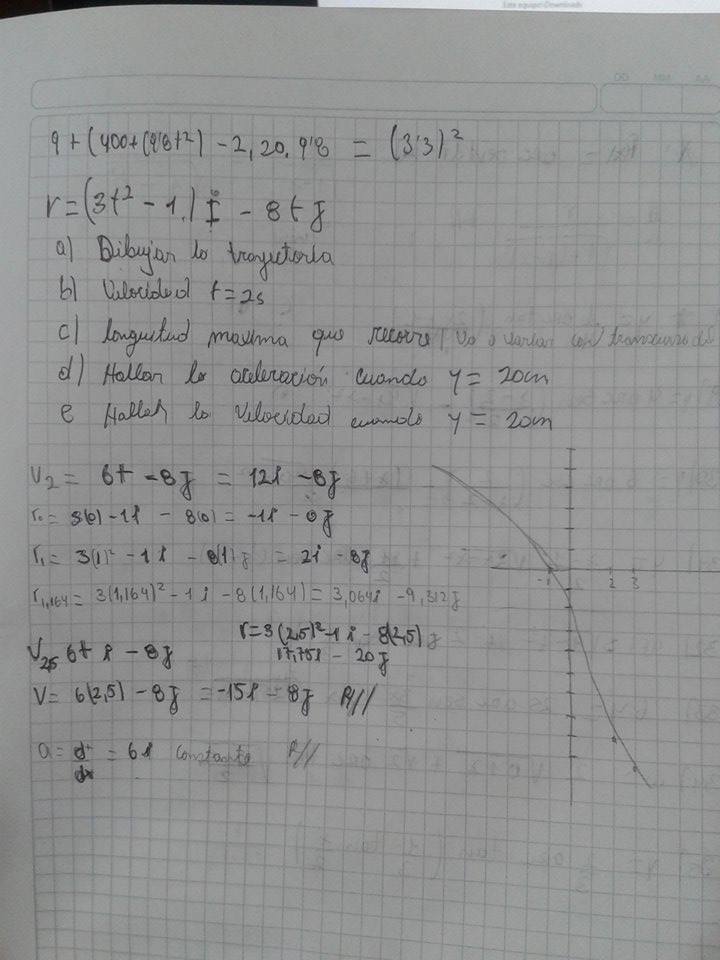 Este equipo Downloads
DD MM AA
9 + (400 + (9'8t²) - 2, 20. 9'8 = (3'3)²
r = (3t² - 1.) i - 8t j
a) Dibujar la trayectoria
b) Velocidad t = 2s
c) longuitud maxima que recorre (Va a variar con transcurso del
d) Hallar la aceleración cuando y = 20cm
e Hallar la Velocidad cuando y = 20cm
V₂ = 6t - 8j = 12i - 8j
r₀ = 3(0) - 1i - 8(0) = -1i - 0j
r₁ = 3(1)² - 1i - 8(1)j = 2i - 8j
r₁,₁₆₄ = 3(1,164)² - 1i - 8(1,164) = 3,064i - 9,312j
r = 3(2,5)² - 1i - 8(2,5)j
V₂,₅ 6t i - 8j 17,75i - 20j
V = 6(2,5) - 8j = -15i - 8j R//
a = = 6i constante R//
-1 2 3